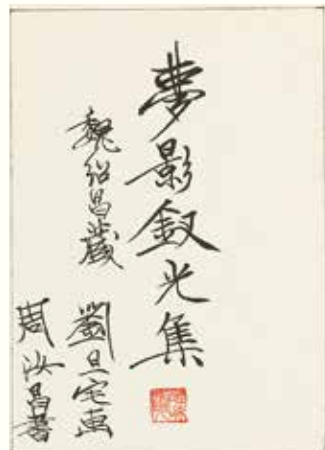 夢影釵光集
魏紹昌藏
劉旦宅画
周汝昌署